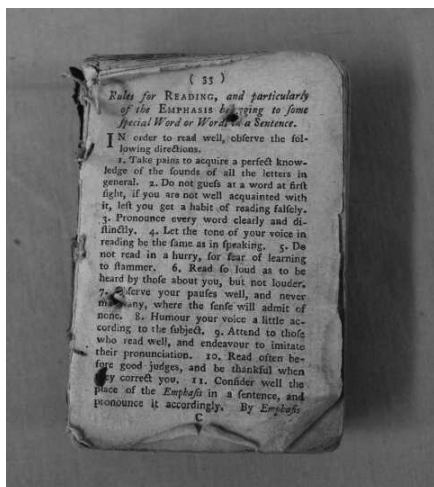 ( 33 )
Rules for READING, and particularly
of the EMPHASIS belonging to ſome
ſpecial Word or Words in a Sentence.
IN order to read well, obſerve the fol-
lowing directions.
1. Take pains to acquire a perfect know-
ledge of the ſounds of all the letters in
general. 2. Do not gueſs at a word at firſt
ſight, if you are not well acquainted with
it, leſt you get a habit of reading falſely.
3. Pronounce every word clearly and di-
ſtinctly. 4. Let the tone of your voice in
reading be the ſame as in ſpeaking. 5. Do
not read in a hurry, for fear of learning
to ſtammer. 6. Read ſo loud as to be
heard by thoſe about you, but not louder.
7. Obſerve your pauſes well, and never
make any, where the ſenſe will admit of
none. 8. Humour your voice a little ac-
cording to the ſubject. 9. Attend to thoſe
who read well, and endeavour to imitate
their pronunciation. 10. Read often be-
fore good judges, and be thankful when
they correct you. 11. Conſider well the
place of the Emphaſis in a ſentence, and
pronounce it accordingly. By Emphaſis
C